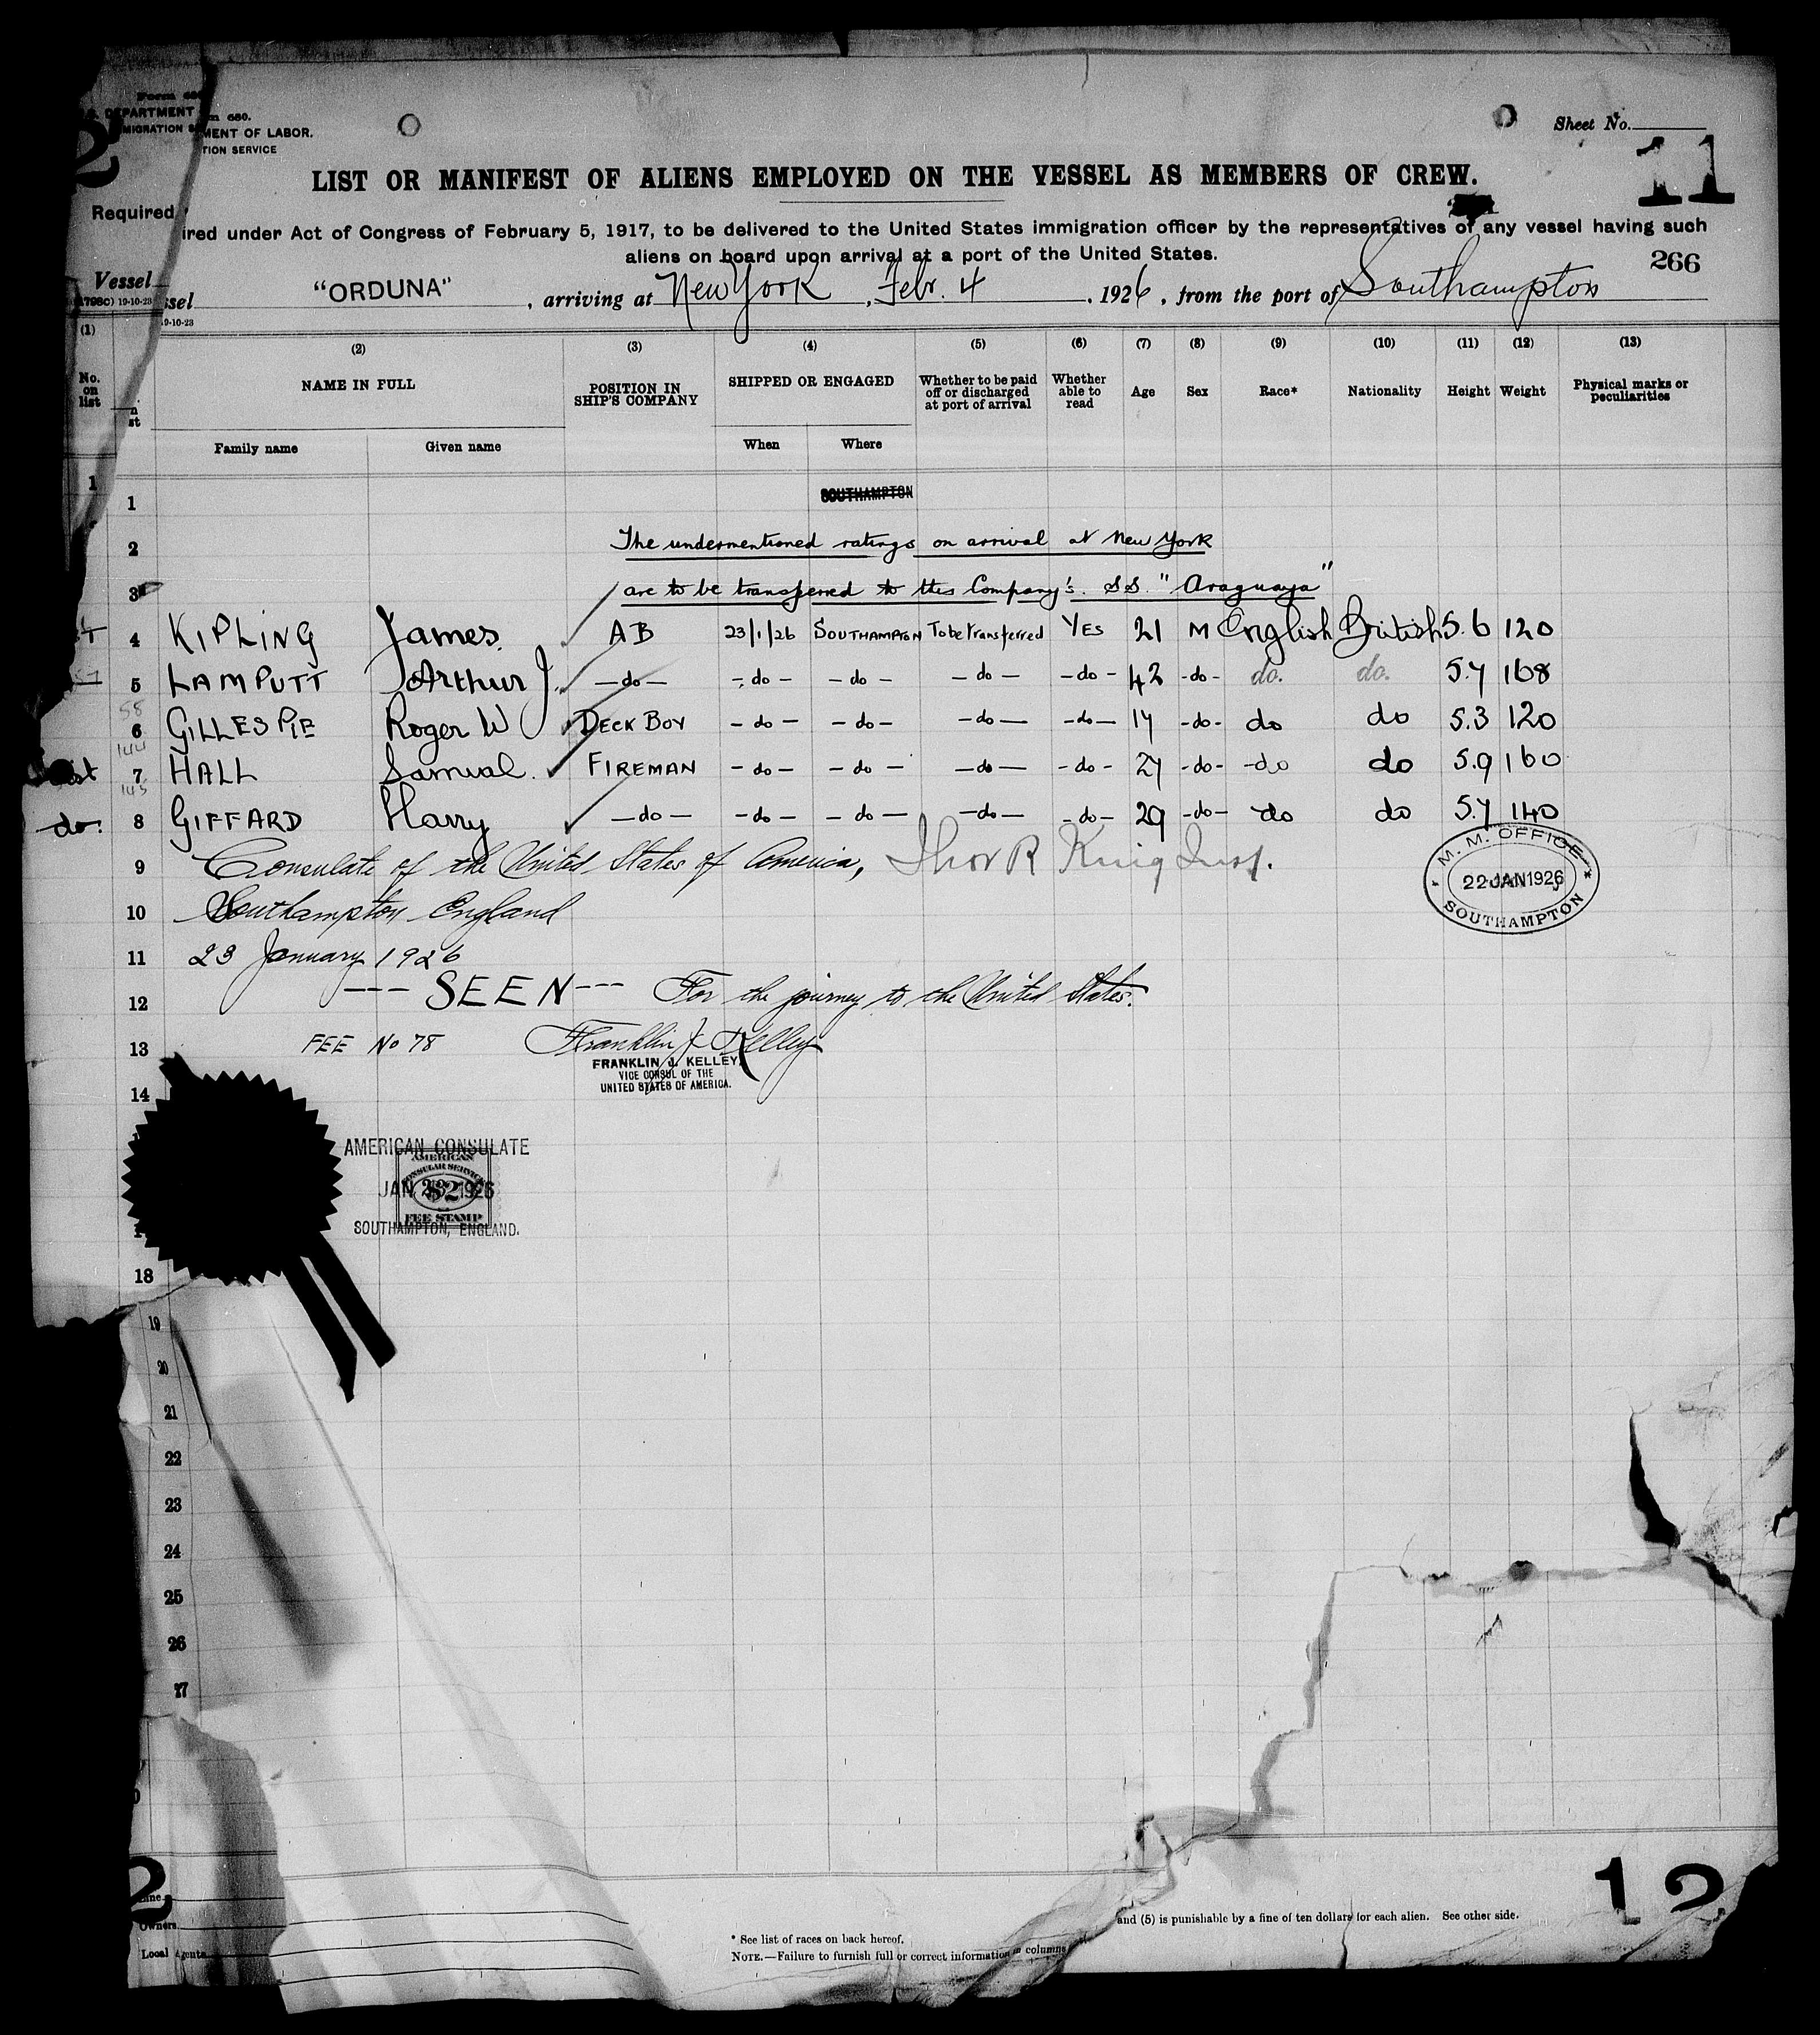 Form 680.
DEPARTMENT
MENT OF LABOR.
TION SERVICE
Sheet No.
11
LIST OR MANIFEST OF ALIENS EMPLOYED ON THE VESSEL AS MEMBERS OF CREW.
Required
ired under Act of Congress of February 5, 1917, to be delivered to the United States immigration officer by the representatives of any vessel having such
aliens on board upon arrival at a port of the United States.
266
Vessel
ssel "ORDUNA", arriving at New York, Febr. 4, 1926, from the port of Southampton
19-10-23
(1) (2) (3) (4) (5) (6) (7) (8) (9) (10) (11) (12) (13)
No. on list NAME IN FULL POSITION IN SHIP'S COMPANY SHIPPED OR ENGAGED Whether to be paid off or discharged at port of arrival Whether able to read Age Sex Race* Nationality Height Weight Physical marks or peculiarities
Family name Given name When Where
1 SOUTHAMPTON
2 The undermentioned ratings on arrival at New York
3 are to be transferred to this Company's. SS. "Araguaya"
4 KIPLING James. AB 23/1/26 SOUTHAMPTON To be transferred YES 21 M English British 5.6 120
5 LAMPUTT Arthur J. -do- -do- -do- -do- -do- 42 -do- do. do. 5.7 168
58
6 GILLESPIE Roger W DECK BOY -do- -do- -do- -do- 17 -do- do do 5.3 120
144
7 HALL Samual. FIREMAN -do- -do- -do- -do- 27 -do- -do do 5.9 160
145
do. 8 GIFFARD Harry -do- -do- -do- -do- -do- 29 -do- do do 5.7 140
9 Consulate of the United States of America,
10 Southampton England
11 23 January 1926
M. M. OFFICE
22 JAN 1926
SOUTHAMPTON
12 --- SEEN --- For the journey to the United States.
13 FEE No 78 Franklin J. Kelley
FRANKLIN J. KELLEY,
VICE CONSUL OF THE
UNITED STATES OF AMERICA.
14
AMERICAN CONSULATE
AMERICAN
CONSULAR SERVICE
JAN 23 1926
$2
FEE STAMP
SOUTHAMPTON, ENGLAND.
18
19
20
21
22
23
24
25
26
27
12
Owners
Local Agents
and (5) is punishable by a fine of ten dollars for each alien. See other side.
* See list of races on back hereof.
NOTE.—Failure to furnish full or correct information in columns